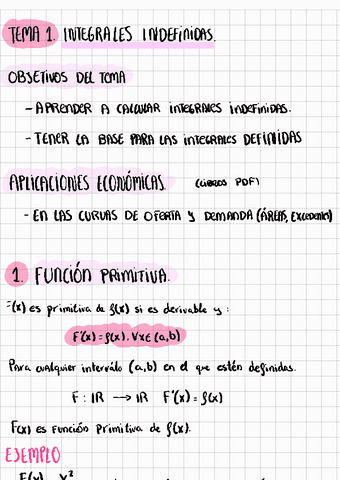 TEMA 1. INTEGRALES INDEFINIDAS.
OBJETIVOS DEL TEMA
- APRENDER A CALCULAR INTEGRALES INDEFINIDAS.
- TENER LA BASE PARA LAS INTEGRALES DEFINIDAS
APLICACIONES ECONÓMICAS (LIBROS PDF)
- EN LAS CURVAS DE OFERTA Y DEMANDA (ÁREAS, Excedentes)
1. FUNCIÓN PRIMITIVA.
F(x) es primitiva de f(x) si es derivable y:
F'(x) = f(x). ∀x ∈ (a,b)
Para cualquier intervalo (a,b) en el que estén definidas.
F: IR → IR F'(x) = f(x)
F(x) es Función Primitiva de f(x).
EJEMPLO
F(x) x²